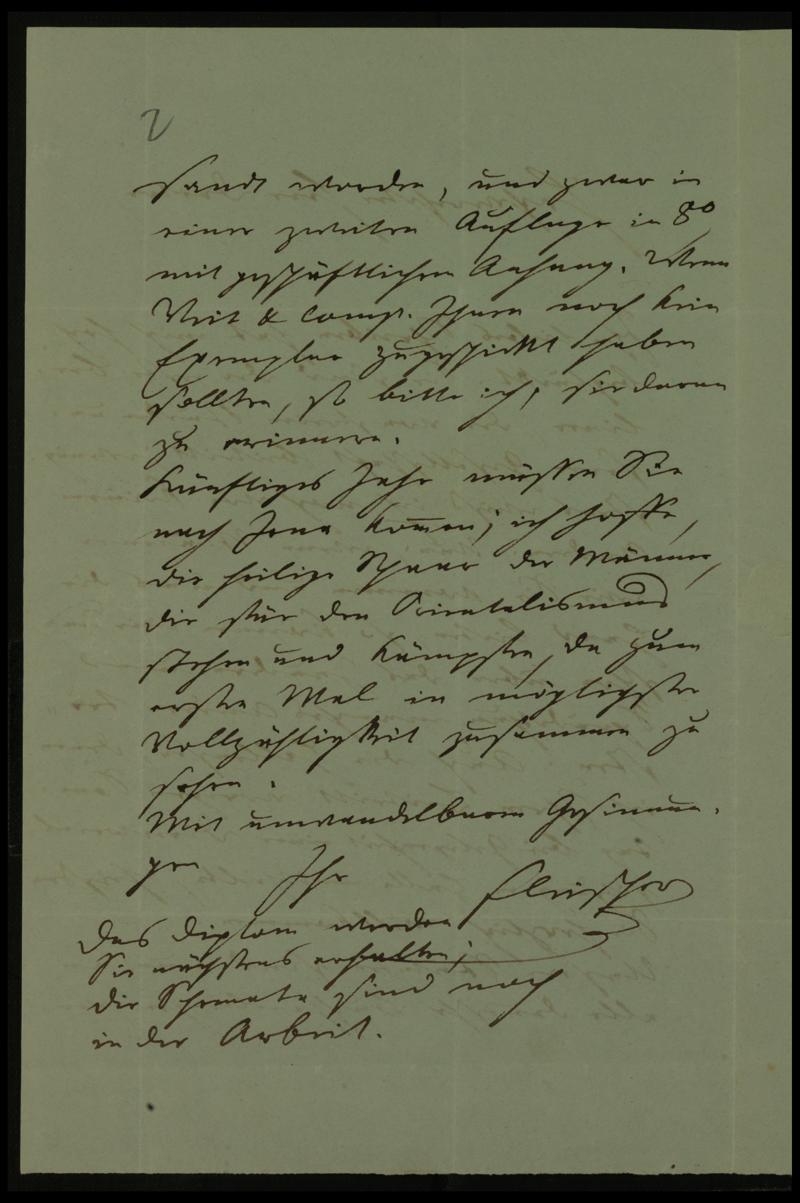 2
sandt worden, und zwar in
einer zweiten Auflage in 8°
mit geschäftlichem Anhang. Wenn
Veit & Comp. Ihnen noch kein
Exemplar zugeschickt haben
sollten, so bitte ich, sie daran
zu erinnern.
Künftiges Jahr müssen Sie
nach Jena kommen; ich hoffe,
die heilige Schaar der Männer,
die für den Orientalismus
stehen und kämpfen, da zum
ersten Mal in möglichster
Vollzähligkeit zusammen zu
sehen.
Mit unwandelbaren Gesinnun-
gen Ihr Fleischer
Das Diplom werden
Sie nächstens erhalten;
die Schemata sind noch
in der Arbeit.